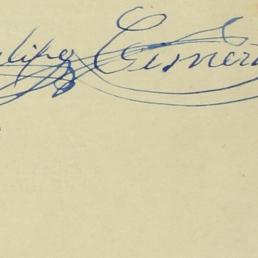 elipe Cisnero